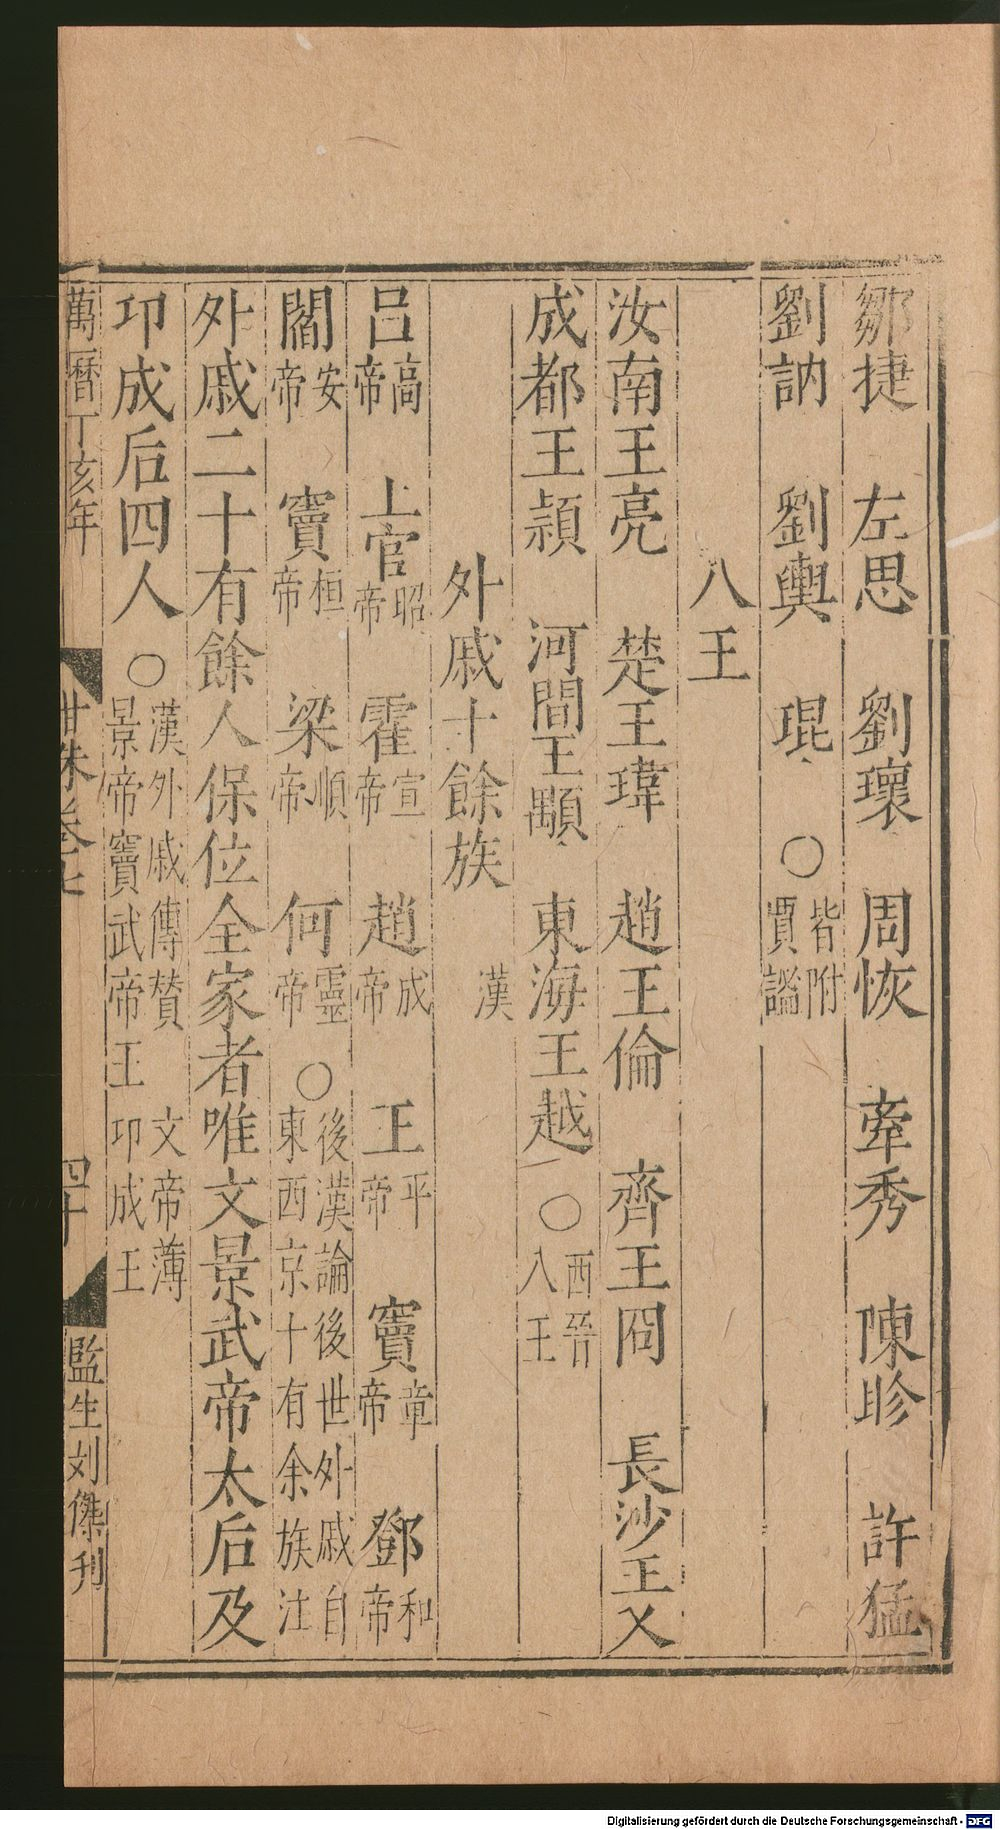 鄒捷　左思　劉瓌　周恢　牽秀　陳眕　許猛
劉訥　劉輿　琨　○皆附賈謐
八王
汝南王亮　楚王瑋　趙王倫　齊王冏　長沙王乂
成都王頴　河間王顒　東海王越　○西晉八王
外戚十餘族　漢
呂高帝　上官昭帝　霍宣帝　趙成帝　王平帝　竇章帝　鄧和帝
閻安帝　竇桓帝　梁順帝　何靈帝　○後漢論後世外戚自東西京十有余族注
外戚二十有餘人保位全家者唯文景武帝太后及
卭成后四人　○漢外戚傳賛　文帝薄景帝竇武帝王　卭成王
萬曆丁亥年　卷七　四十　監生刘傑刊
Digitalisierung gefördert durch die Deutsche Forschungsgemeinschaft - DFG